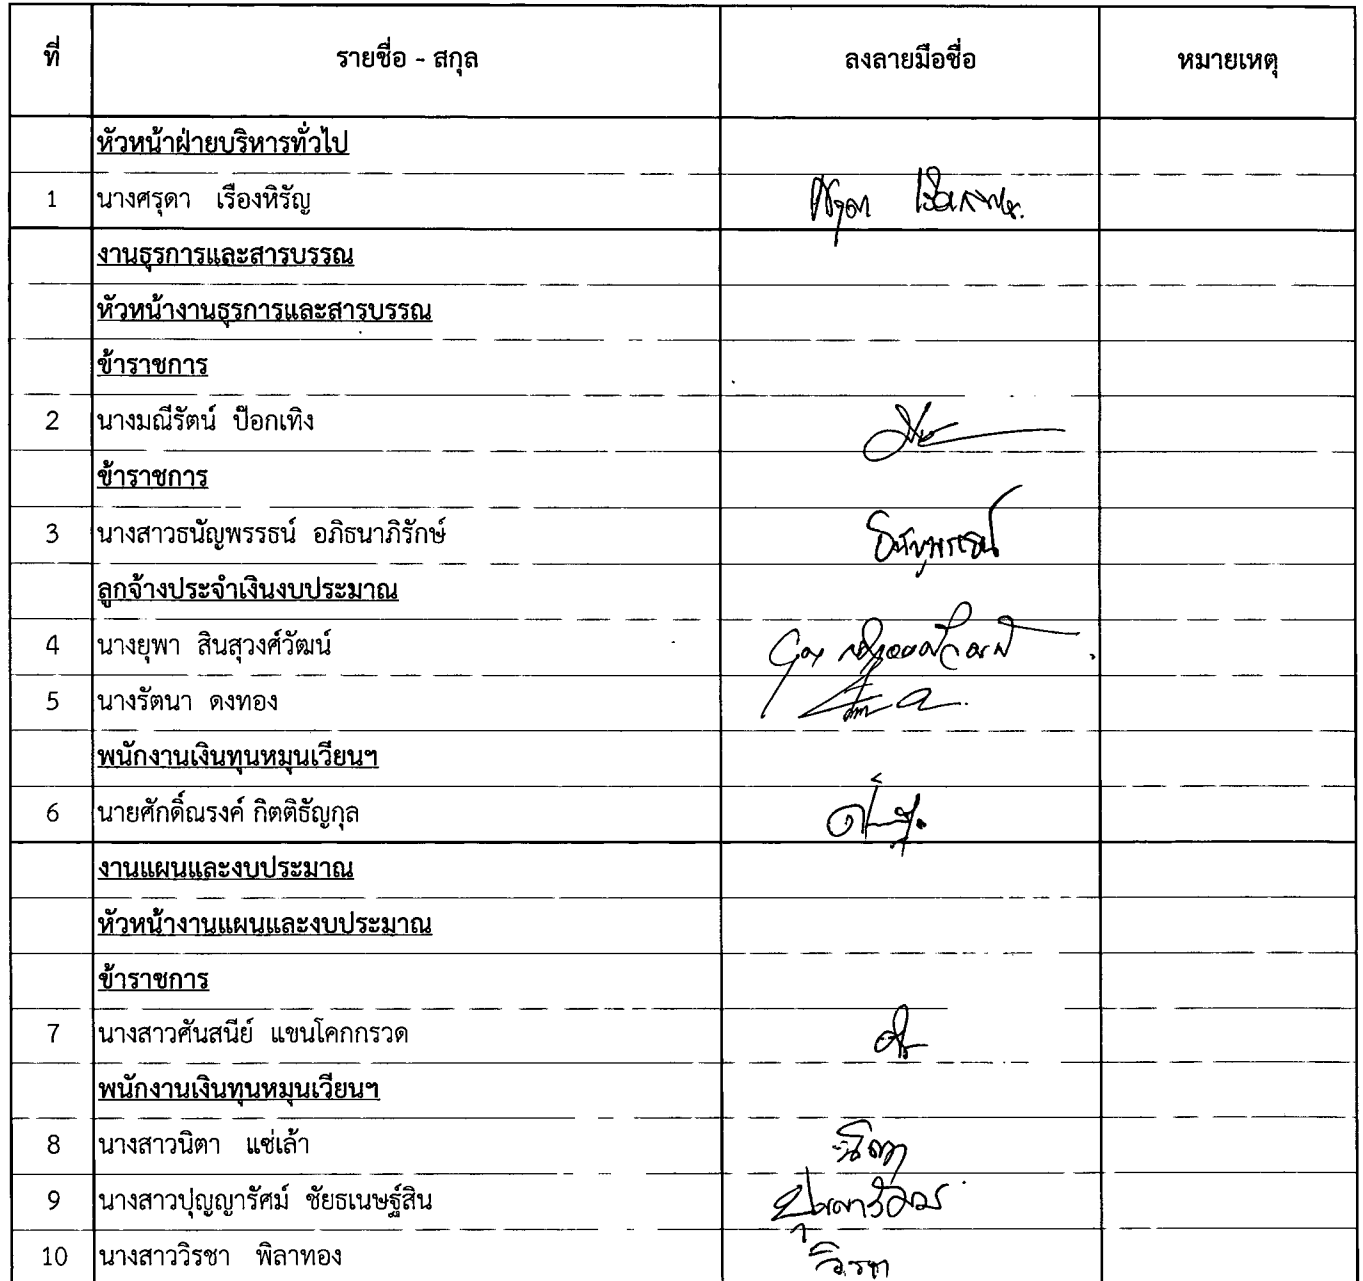 ที่ รายชื่อ - สกุล ลงลายมือชื่อ หมายเหตุ
หัวหน้าฝ่ายบริหารทั่วไป
1 นางศรุดา เรืองหิรัญ ศรุดา
งานธุรการและสารบรรณ
หัวหน้างานธุรการและสารบรรณ
ข้าราชการ
2 นางมณีรัตน์ ป๊อกเทิง
ข้าราชการ
3 นางสาวธนัญพรรธน์ อภิธนาภิรักษ์ ธนัญพรรธน์
ลูกจ้างประจำเงินงบประมาณ
4 นางยุพา สินสุวงศ์วัฒน์
5 นางรัตนา ดงทอง
พนักงานเงินทุนหมุนเวียนฯ
6 นายศักดิ์ณรงค์ กิตติธัญกุล
งานแผนและงบประมาณ
หัวหน้างานแผนและงบประมาณ
ข้าราชการ
7 นางสาวศันสนีย์ แขนโคกกรวด
พนักงานเงินทุนหมุนเวียนฯ
8 นางสาวนิตา แซ่เล้า นิตา
9 นางสาวปุญญารัศม์ ชัยธเนษฐ์สิน
10 นางสาววิรชา พิลาทอง วิรชา